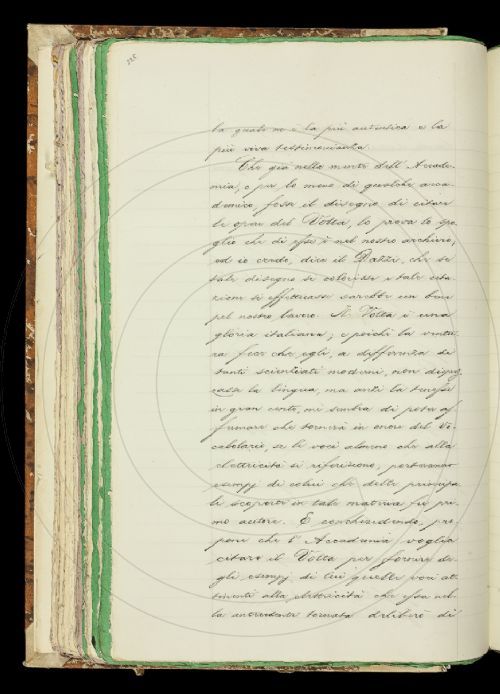 la quale ne è la più autentica e la
più viva testimonianza.
Che già nella mente dell'Accade-
mia, o per lo meno di qualche acca-
demico, fosse il disegno di citare
le opere del Volta, lo prova lo spo-
glio che di esse è nel nostro archivio,
ed io credo, dice il Dazzi, che se
tale disegno si colorisse e tale cita-
zione si effettuasse sarebbe un bene
pel nostro lavoro. Il Volta è una
gloria italiana; e poichè la ventu-
ra fece che egli, a differenza di
tanti scienziati moderni, non disprez-
zasse la lingua, ma anzi la tenesse
in gran conto, mi sembra di poter af-
fermare che tornerà in onore del Vo-
cabolario, se le voci almeno che alla
elettricità si riferiscono, porteranno
esempj di colui che delle principa-
li scoperte in tale materia fu pri-
mo autore. E conchiudendo, pro-
pone che l'Accademia voglia
citare il Volta per fornire de-
gli esempj di lui quelle voci at-
tinenti alla elettricità che essa nel-
la antecedente tornata deliberò di